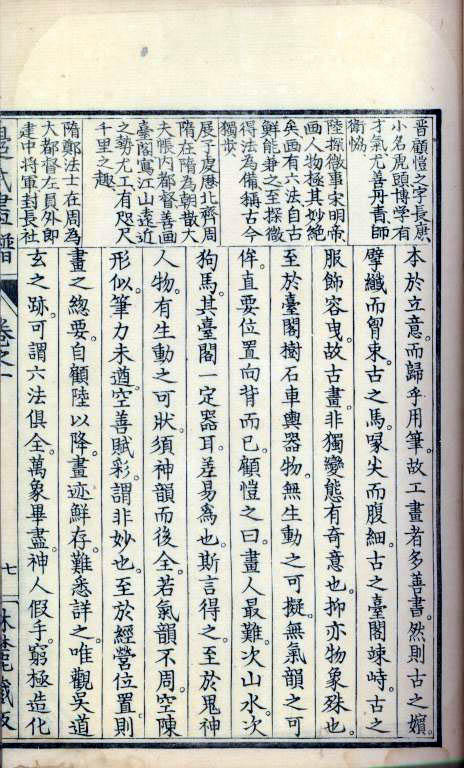 晉顧愷之字長康
小名虎頭博學有
才氣尤善丹青師
衛協
陸探微事宋明帝
畫人物極其妙絕
矣画有六法自古
鮮能兼之至探微
得法為備稱古今
獨步
展子虔歷北齊周
隋在隋為朝散大
夫帳內都督善画
臺閣寓江山遠近
之勢尤工有咫尺
千里之趣
隋鄭法士在周為
大都督左員外郎
建中將軍封長社
本於立意。而歸乎用筆。故工畫者多善書。然則古之嬪。
擘纖而胷束。古之馬。喙尖而腹細。古之臺閣竦峙。古之
服飾容曳。故古畫非獨變態有奇意也。抑亦物象殊也。
至於臺閣樹石車輿器物。無生動之可擬。無氣韻之可
侔。直要位置向背而已。顧愷之曰。畫人最難。次山水。次
狗馬。其臺閣一定器耳。差易為也。斯言得之。至於鬼神
人物。有生動之可狀。須神韻而後全。若氣韻不周。空陳
形似。筆力未遒。空善賦彩。謂非妙也。至於經營位置。則
畫之總要。自顧陸以降。畫迹鮮存。難悉詳之。唯觀吳道
玄之跡。可謂六法俱全。萬象畢盡。神人假手。窮極造化
畫譜
卷之一
七